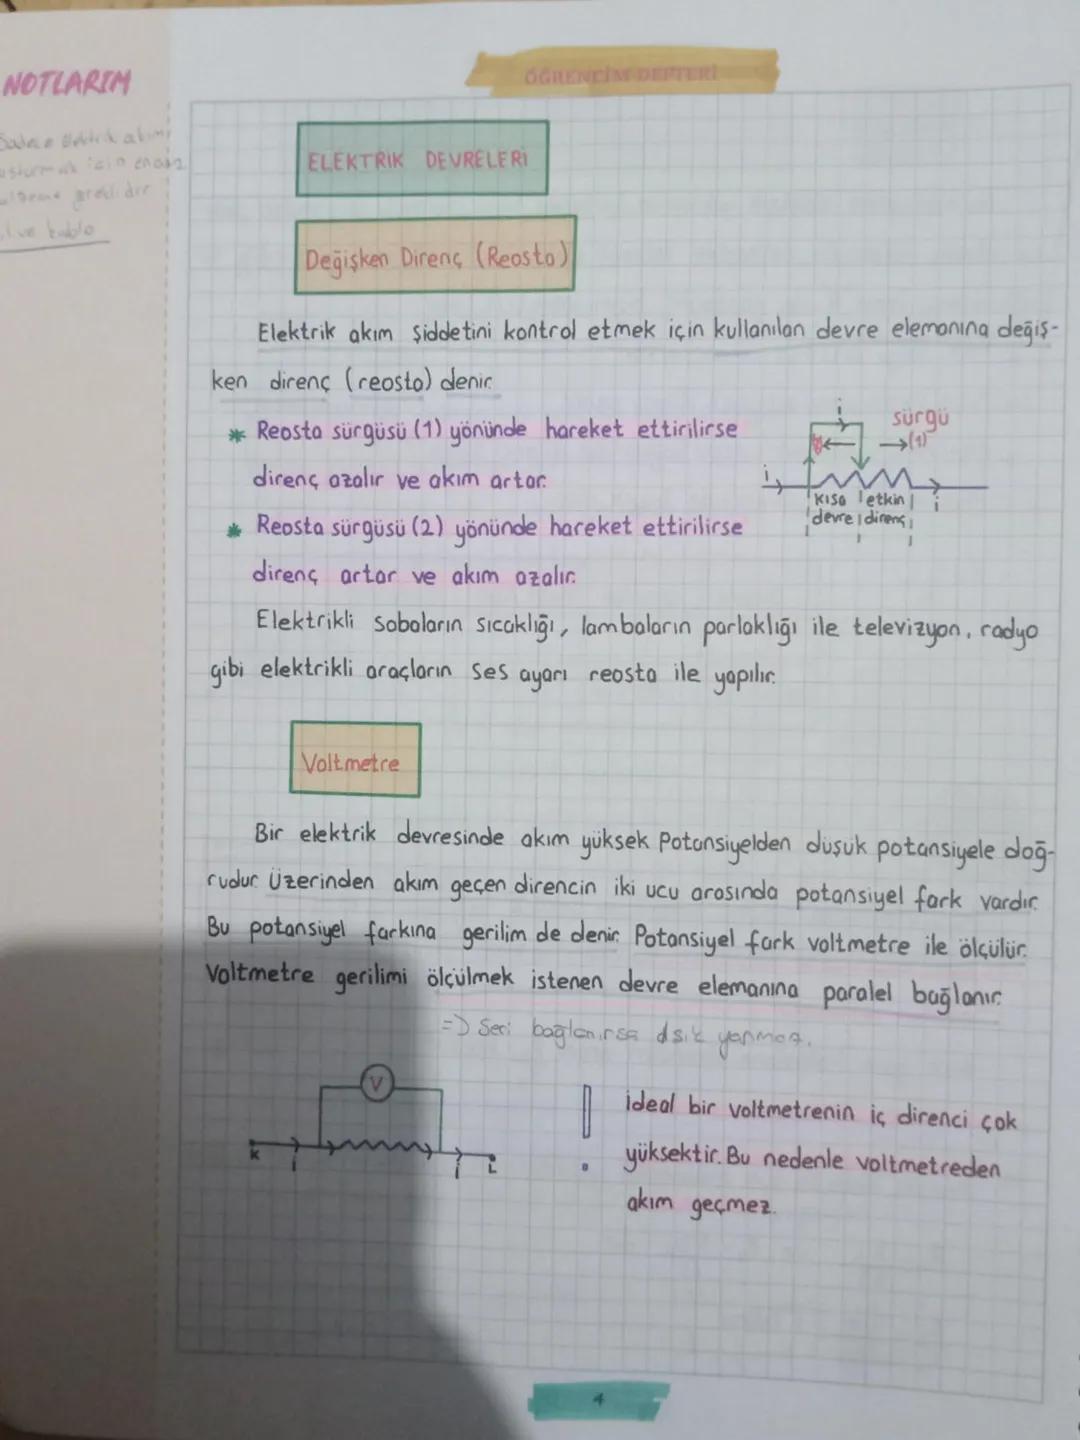 NOTLARIM
ÖĞRENCİM DEFTERİ
Sadece elektrik akımı
için en az 2
gereklidir
ve kablo
ELEKTRIK DEVRELERİ
Değişken Direnç (Reosta)
Elektrik akım şiddetini kontrol etmek için kullanılan devre elemanına değiş-
ken direnç (reosta) denir.
* Reosta sürgüsü (1) yönünde hareket ettirilirse
direnç azalır ve akım artar.
* Reosta sürgüsü (2) yönünde hareket ettirilirse
direnç artar ve akım azalır.
i
sürgü
(1)
i
i
kısa etkin
devre direnç
Elektrikli sobaların sıcaklığı, lambaların parlaklığı ile televizyon, radyo
gibi elektrikli araçların ses ayarı reosta ile yapılır.
Voltmetre
Bir elektrik devresinde akım yüksek Potansiyelden düşük potansiyele doğ-
rudur. Üzerinden akım geçen direncin iki ucu arasında potansiyel fark vardır.
Bu potansiyel farkına gerilim de denir. Potansiyel fark voltmetre ile ölçülür.
Voltmetre gerilimi ölçülmek istenen devre elemanına paralel bağlanır.
=> Seri bağlanırsa yanmaz.
V
K
i
i
L
ideal bir voltmetrenin iç direnci çok
yüksektir. Bu nedenle voltmetreden
akım geçmez.
4